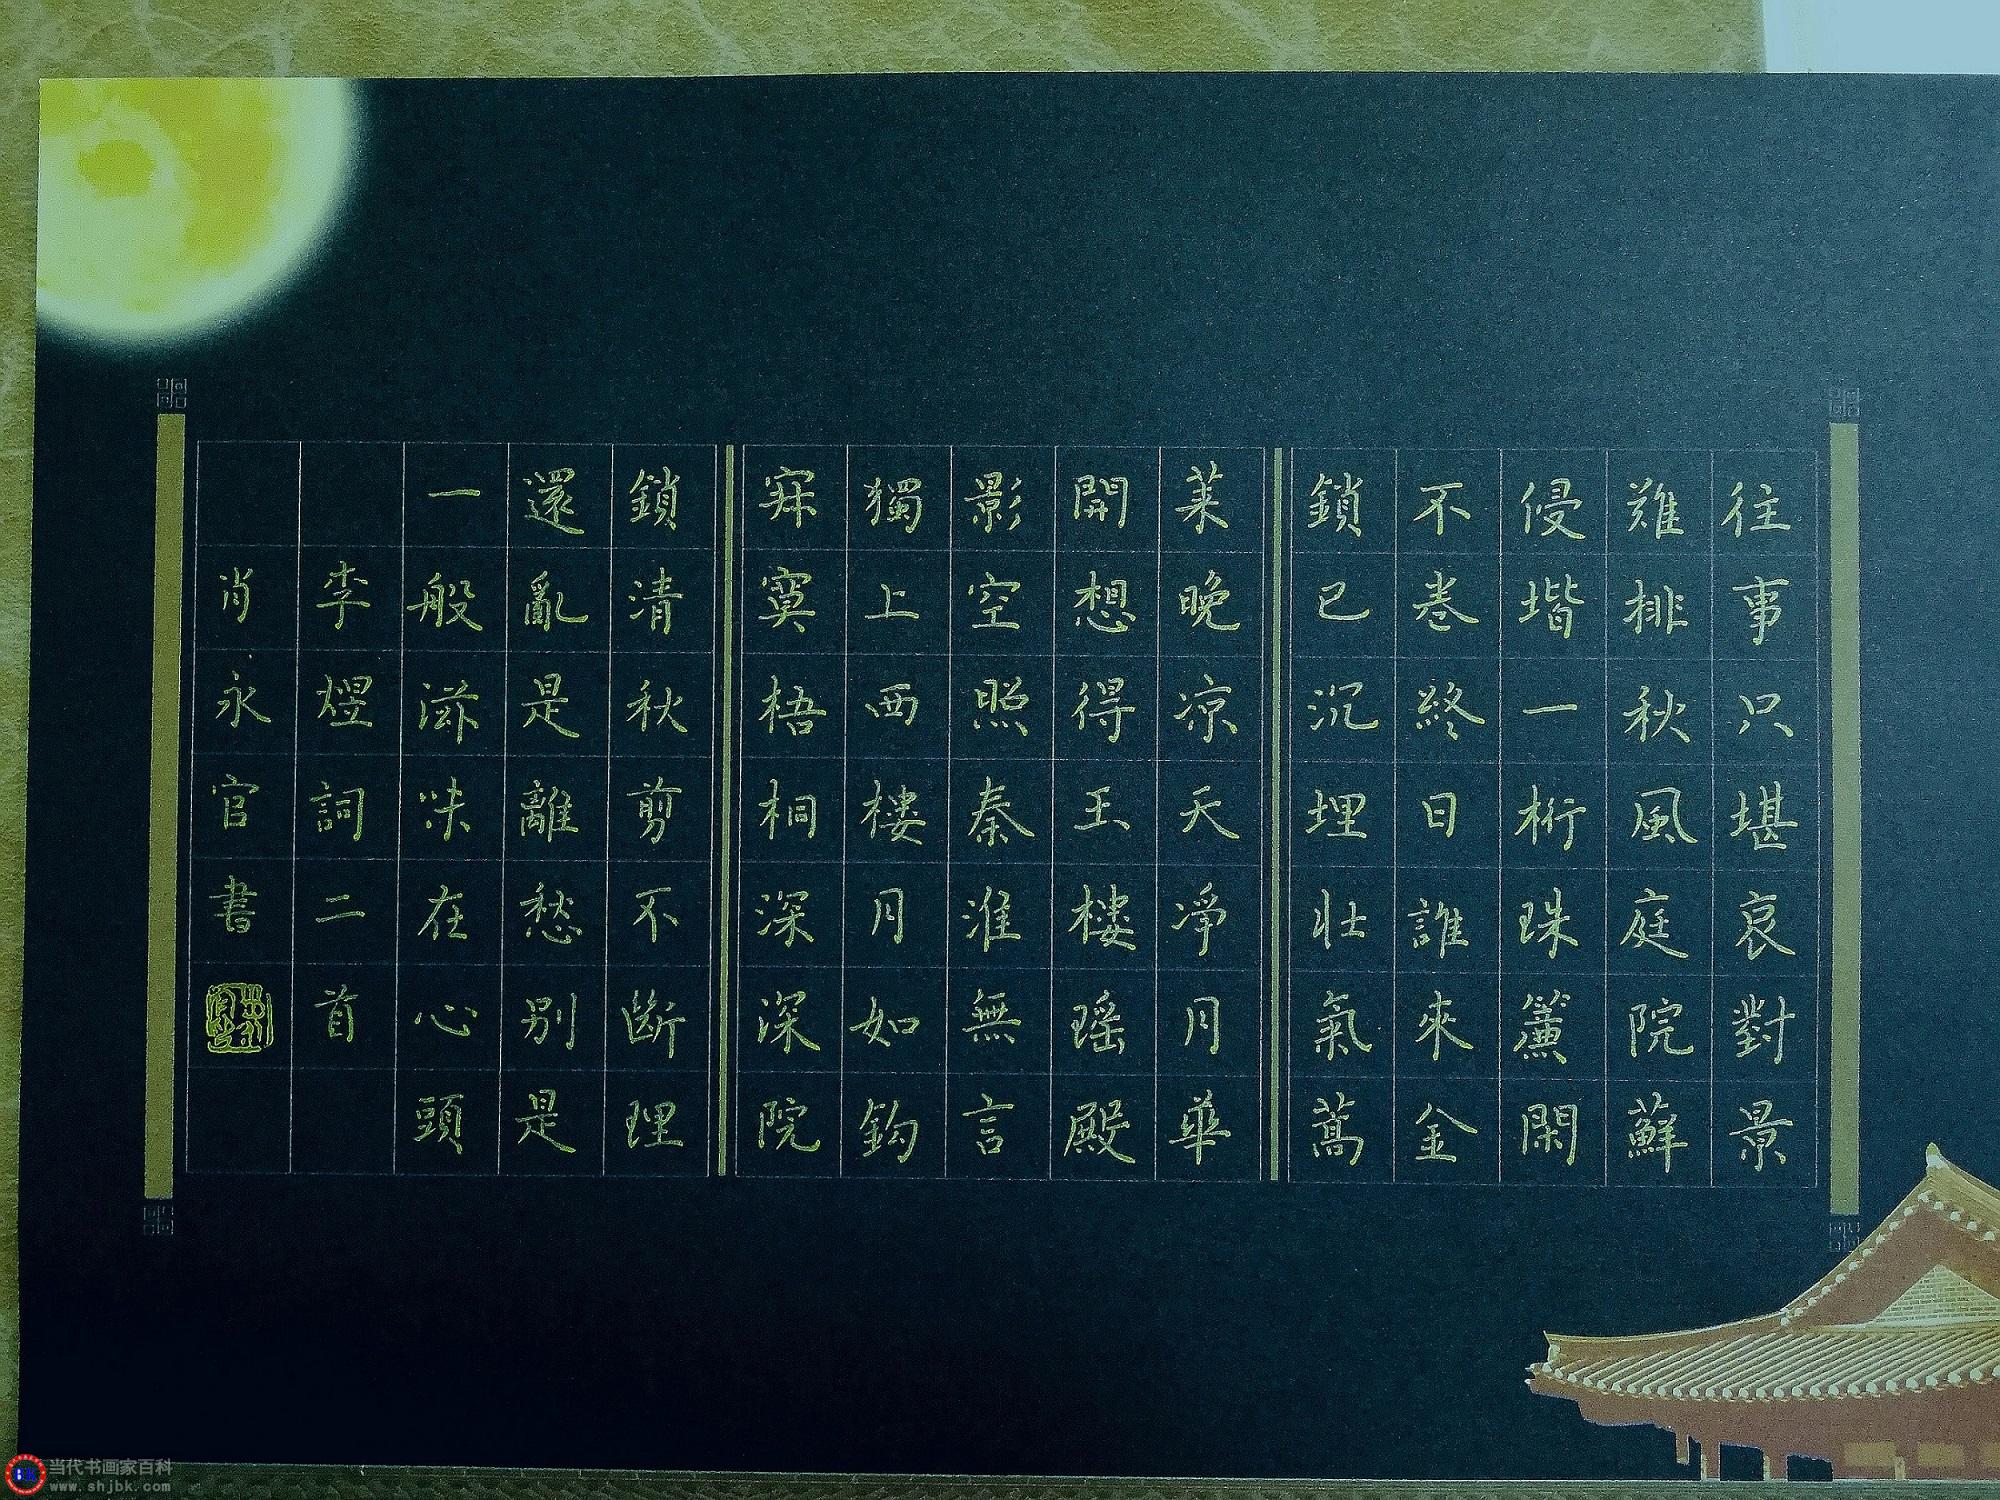 往事只堪哀對景
難排秋風庭院蘚
侵堦一桁珠簾閑
不卷終日誰來金
鎖已沉埋壯氣蒿
萊晚凉天淨月華
開想得玉樓瑤殿
影空照秦淮無言
獨上西樓月如鈎
寂寞梧桐深深院
鎖清秋剪不斷理
還亂是離愁別是
一般滋味在心頭
李煜詞二首
肖永官書
当代书画家百科
www.shjbk.com
Bk